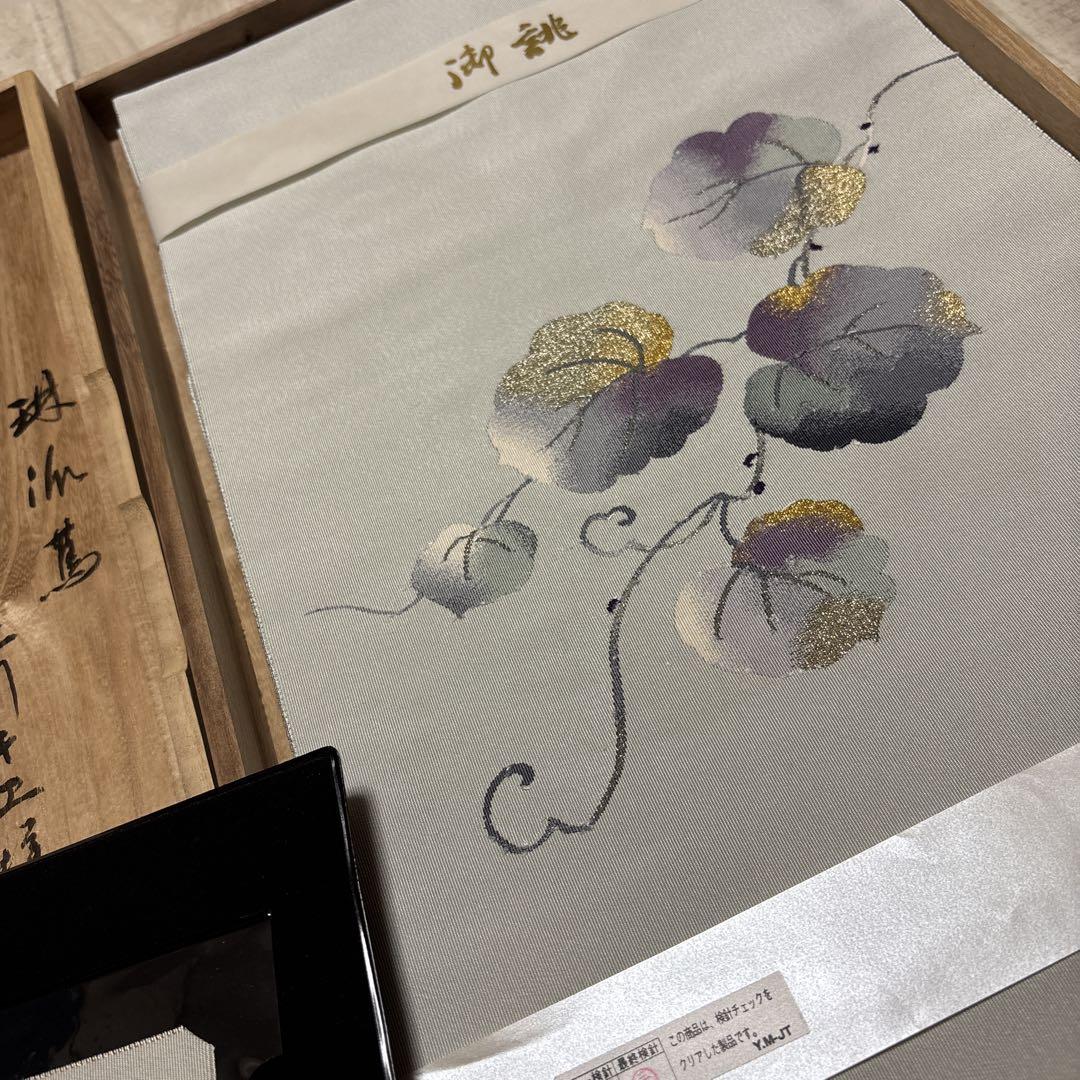 御誂
琳派蔦
検針
最終検針
この商品は、検針チェックを
クリアした製品です。
Y.M-JT